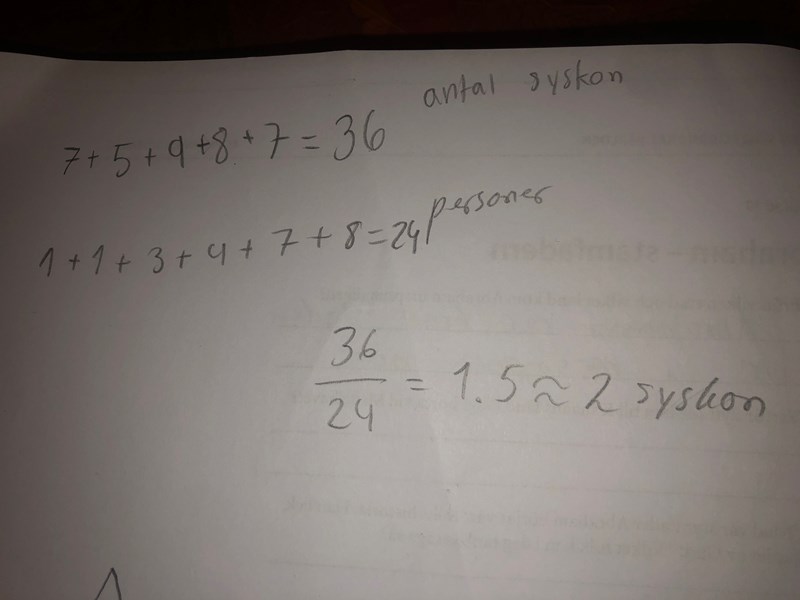 antal syskon
7+5+9+8+7=36
personer
1+1+3+4+7+8=24
36
24 = 1.5≈2 syskon